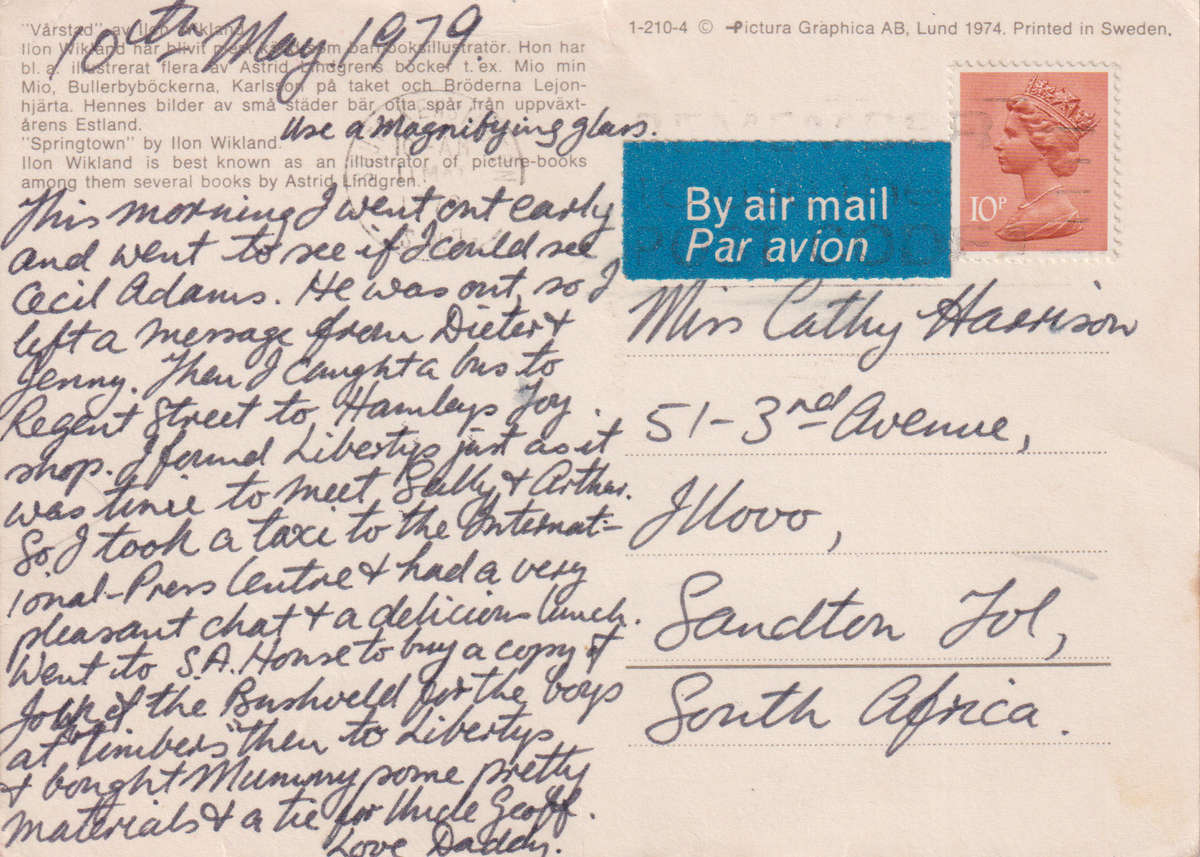 "Vårstad" av Ilon Wikland.
Ilon Wikland har blivit mest känd som barnboksillustratör. Hon har
bl. a. illustrerat flera av Astrid Lindgrens böcker t. ex. Mio min
Mio, Bullerbyböckerna, Karlsson på taket och Bröderna Lejon-
hjärta. Hennes bilder av små städer bär ofta spår från uppväxt-
årens Estland.
"Springtown" by Ilon Wikland.
Ilon Wikland is best known as an illustrator of picture-books
among them several books by Astrid Lindgren.
10th May. 1979.
Use a Magnifying glass.
This morning I went out early
and went to see if I could see
Cecil Adams. He was out, so I
left a message from Dieter &
Jenny. Then I caught a bus to
Regent Street to Hamleys Toy
shop. I found Libertys just as it
was time to meet Sally & Arthur.
So I took a taxi to the Internat-
ional-Press Centre & had a very
pleasant chat & a delicious lunch.
Went to S.A. House to buy a copy of
Jock of the Bushveld for the boys
at "Timbers" then to Libertys
& bought Mummy some pretty
materials & a tie for Uncle Geoff.
Love Daddy.
1-210-4 © Pictura Graphica AB, Lund 1974. Printed in Sweden,
10P
By air mail
Par avion
Miss Cathy Harrison
51-3rd Avenue,
Illovo,
Sandton
South Africa.